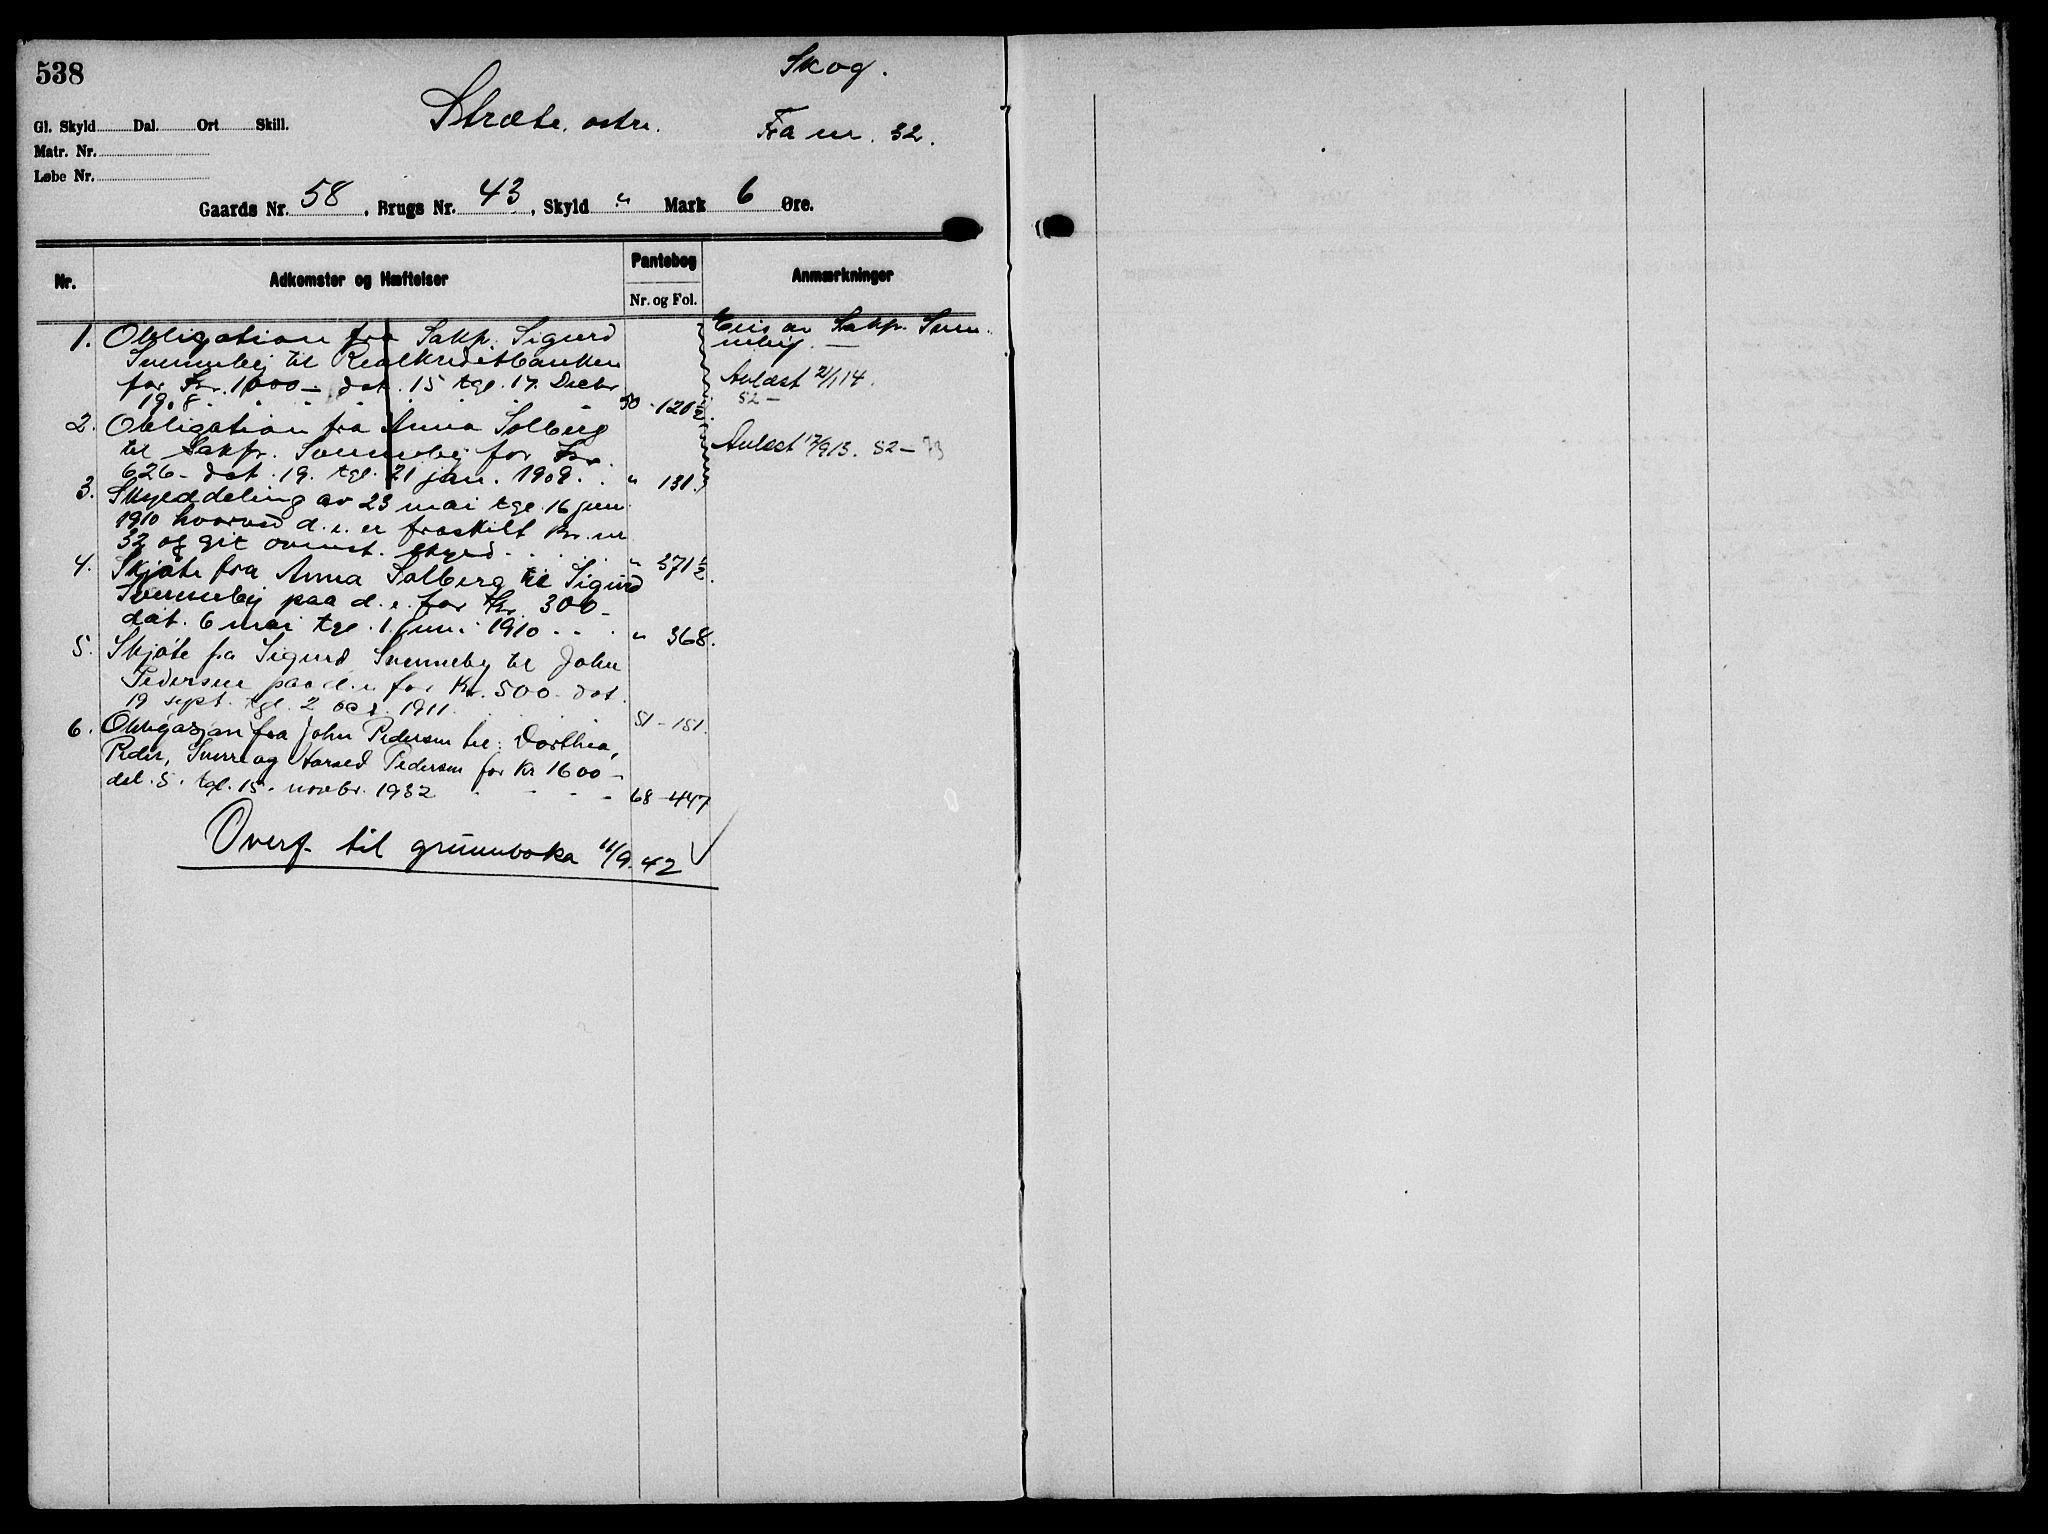 538
Skog.
Stræte, østre.
Fra nr. 32.
Gl. Skyld Dal. Ort Skill.
Matr. Nr.
Løbe Nr.
Gaards Nr. 58, Brugs Nr. 43, Skyld " Mark 6 Øre.
Nr. Adkomster og Hæftelser Pantebog Anmærkninger
Nr. og Fol.
1. Obligation fra Sakf. Sigurd
Svenneby til Realkreditbanken
for Kr. 1000 - dat. 15 tgl. 17. Decbr
1908. 50 - 120½.
Eies av Sakfr. Sven-
neby. —
Avlæst 2/1 14.
52 -
2. Obligation fra Anna Solberg
til Sakfr. Svenneby for Kr.
626 - dat. 19. tgl. 21 jan. 1909. " 131.
Avlæst 17/9 13. 52 - 73
3. Skylddeling av 23 mai tgl. 16 juni
1910 hvorved d. e. er fraskilt br. nr
32 og git ovenst. skyld. " 371½.
4. Skjøte fra Anna Solberg til Sigurd
Svenneby paa d. e. for Kr. 300 -
dat. 6 mai tgl. 1. juni 1910 " 368.
5. Skjøte fra Sigurd Svenneby til John
Pedersen paa d. e. for Kr. 500 - dat.
19 sept. tgl. 2 oct. 1911. 51 - 151.
6. Obligasjon fra John Pedersen til: Dorthea,
Peder, Sverre og Pedersen for Kr 1600 -
dat. 5. tgl. 15. novbr. 1932 68 - 447
Overf. til grunnboka 11/9. 42